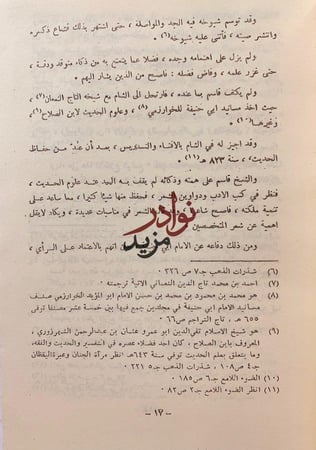 وقد توسم شيوخه فيه الجد والمواصلة ، حتى اشتهر بذلك فشاع ذكره
وانتشر صيته ، فأثنى عليه شيوخه(٦) .
ولم يزل على اهتمامه وجده ، فضلا عما يتمتع به من ذكاء متوقد ودقة ،
حتى غزر علمه ، وفاض فضله : فأصبح من الذين يشار اليهم .
ولم يكتف قاسم بما عنده ، فارتحل الى الشام مع شيخه التاج النعمان(٧) ،
حيث اخذ مسانيد ابي حنيفة للخوارزمي(٨) ، وعلوم الحديث لابن الصلاح(٩)
وغيرها(١٠) .
وقد اجيز له في الشام بالافتاء والتدريس ، بعد أن عُد من حفاظ
الحديث ، سنة ٨٢٣ هـ(١١) .
والشيخ قاسم على همته وذكائه لم يقف به الجد عند علوم الحديث ،
فنظر في كتب الادب ودواوين الشعر ، فحفظ منها شيئا كثيرا ، مما ساعد على
تنمية ملكته ، فأصبح شاعرا الشعر في مناسبات عديدة ، ويكاد لايقل
أهمية عن شعر المتخصصين
ومن ذلك دفاعه عن الامام ابي اتهم بالاعتماد على الرأي ،
نوادر
مزيد
(٦) شذرات الذهب جـ٧ ص٣٢٦ .
(٧) احمد بن محمد تاج الدين النعماني الآتية ترجمته .
(٨) هو محمد بن محمود بن محمد بن حسن الامام ابو المؤيد الخوارزمي صنف
مسانيد الامام ابي حنيفة في مجلدين جمع فيها بين خمسة عشر مصنفا توفى
٦٥٥ هـ . تاج التراجم ص٦٦ .
(٩) هو شيخ الاسلام تقي الدين ابو عمرو عثمان بن عبدالرحمن الشهرزوري ،
المعروف بابن الصلاح ، كان احد فضلاء عصره في التفسير والحديث والفقه ،
وما يتعلق بعلم الحديث توفى سنة ٦٤٣هـ انظر مرآة الجنان وعبرة اليقظان
جـ٤ ص١٠٨ ، شذرات الذهب جـ٥ ٢٢١ .
(١٠) الضوء اللامع جـ٦ ص١٨٥ .
(١١) انظر الضوء اللامع جـ٢ ص٨٢ .
– ١٢ –